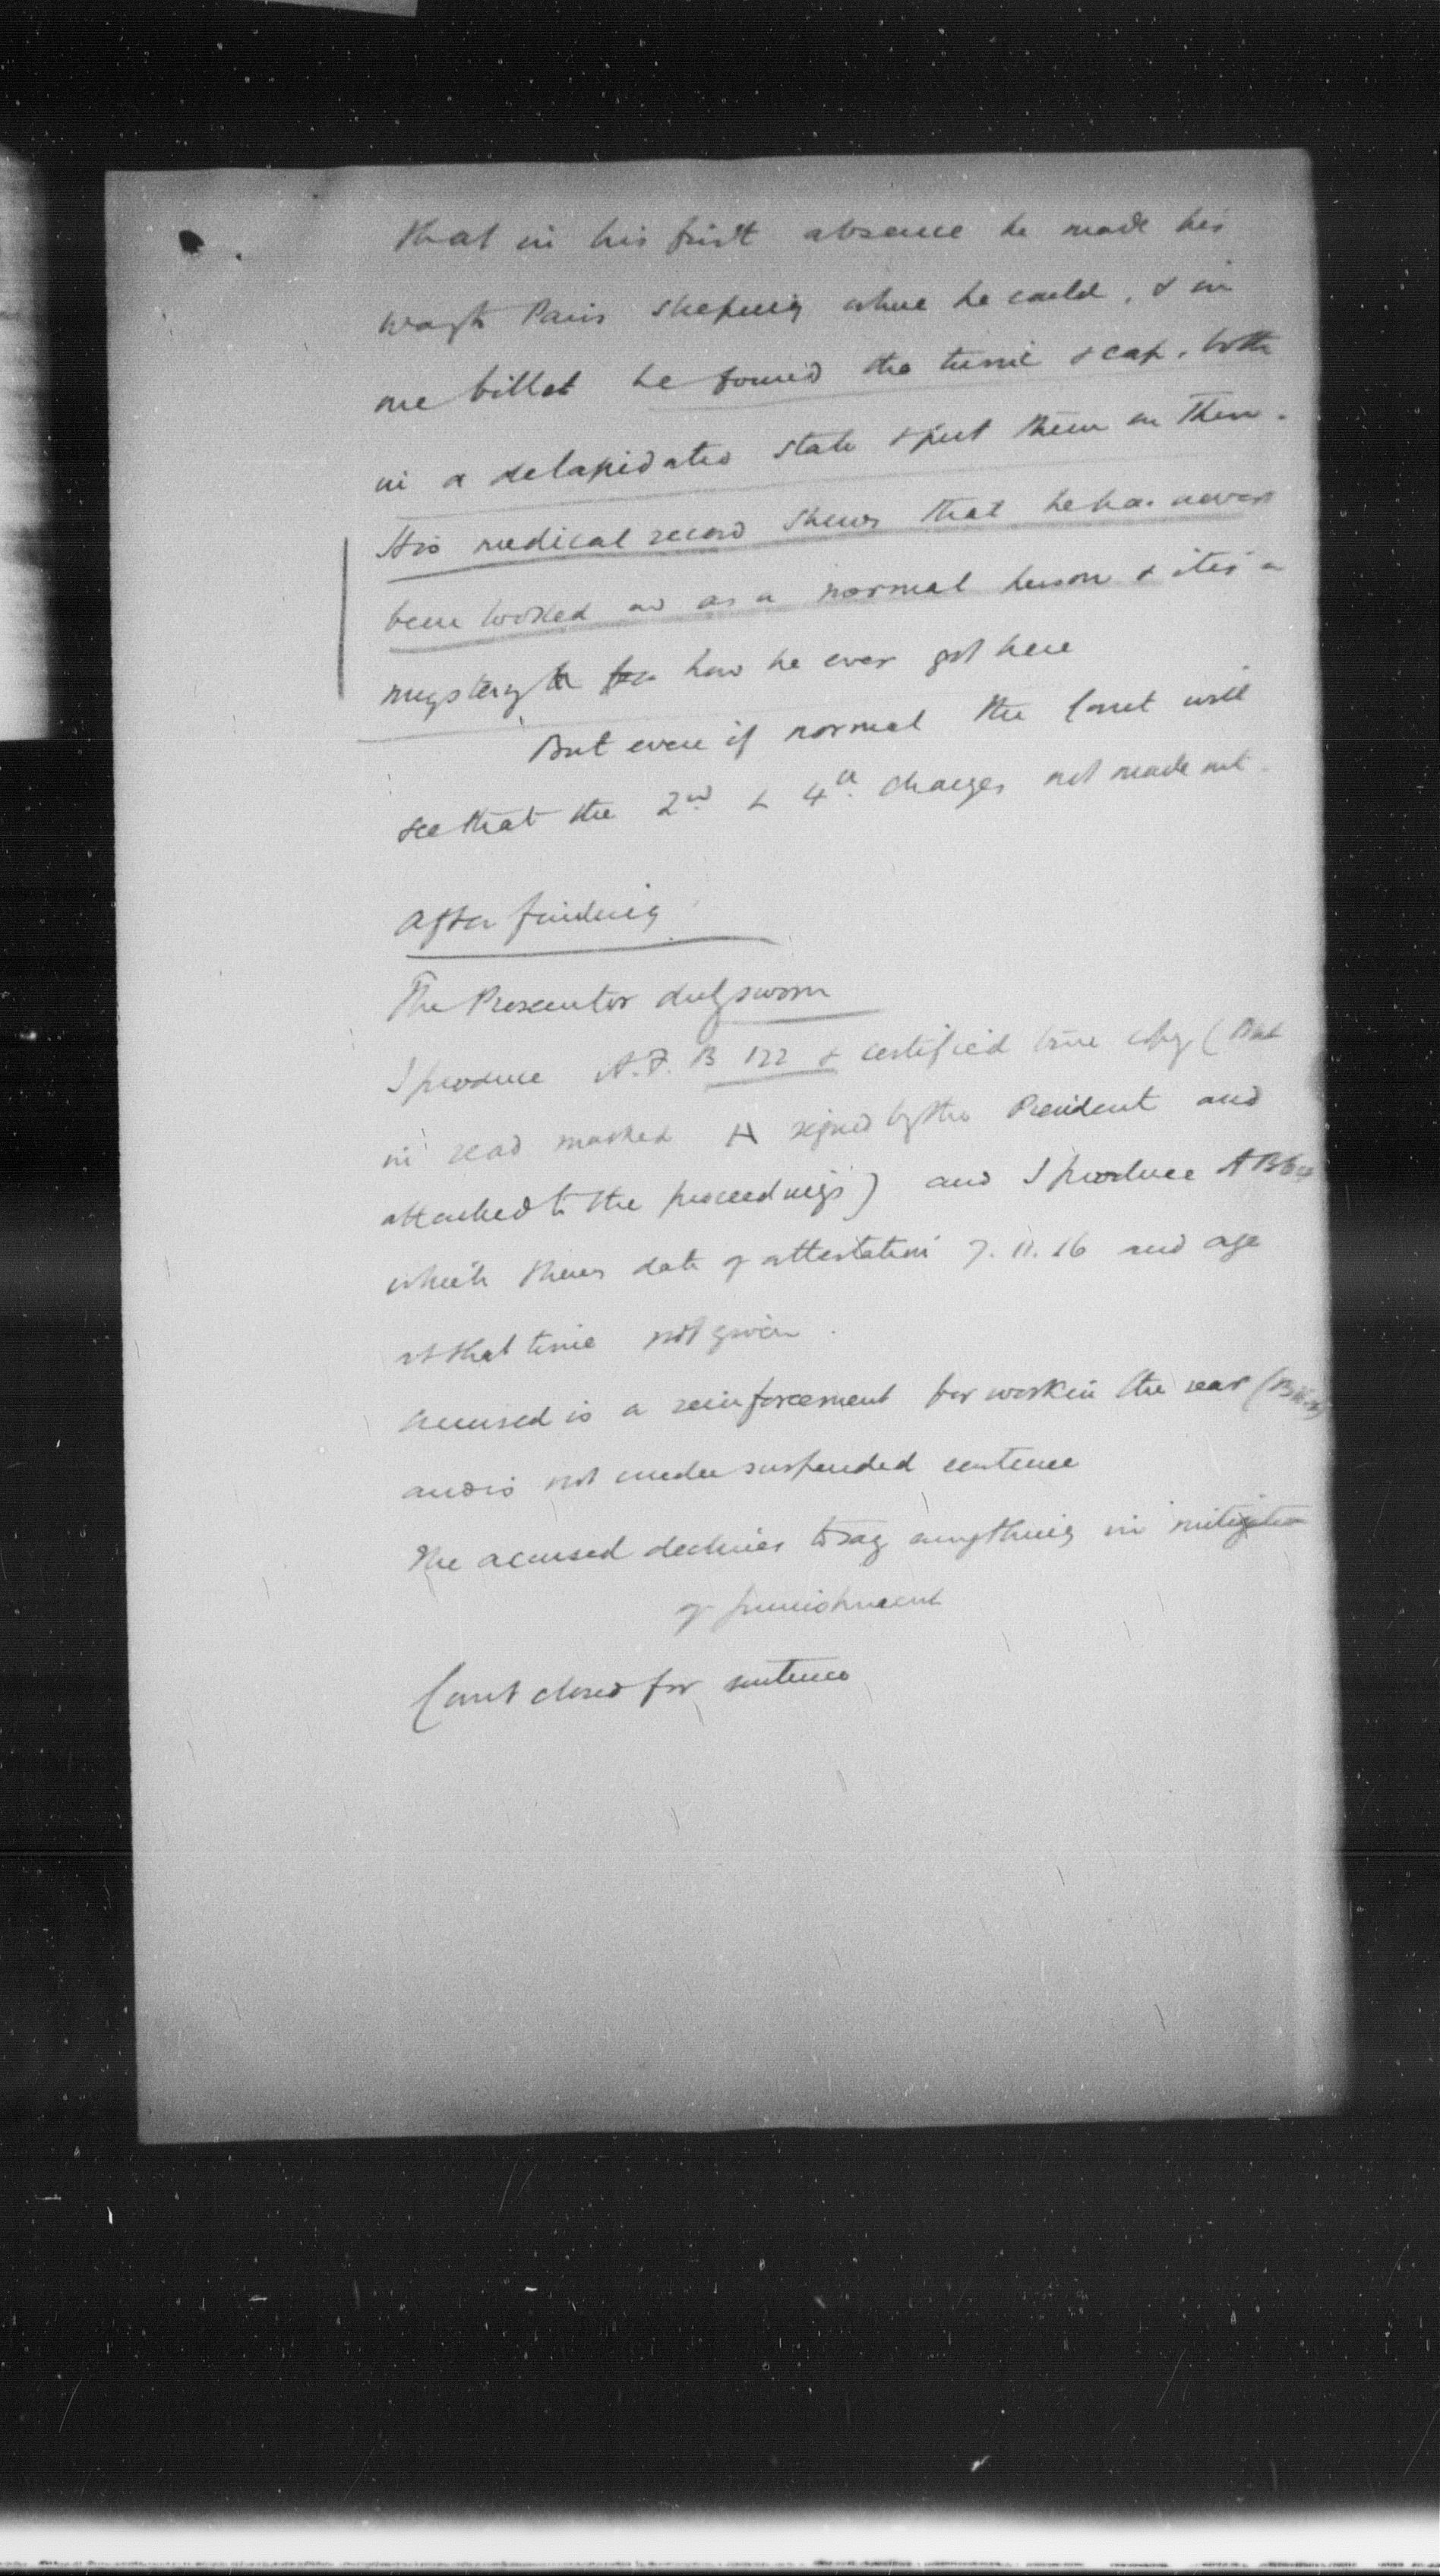 that in his first absence he made his
way to Paris sleeping where he could, & in
one billet he found the tunic & cap, both
in a delapidated state & put them on then.
His medical record shews that he has never
been looked on as a normal person & it is a
mystery how he ever got here
But even if normal the Court will
see that the 2nd & 4th charges not made out.
After finding
The Prosecutor duly sworn
I produce A.F. B 122 & certified true copy (that
is read marked H signed by the President and
attached to the proceedings) and I produce A B64
which shews date of attestation 7.11.16 and age
at that time not given.
Accused is a reinforcement for work in the rear
and is not under suspended sentence
The accused declines to say anything in mitigation
of punishment
Court closed for sentence